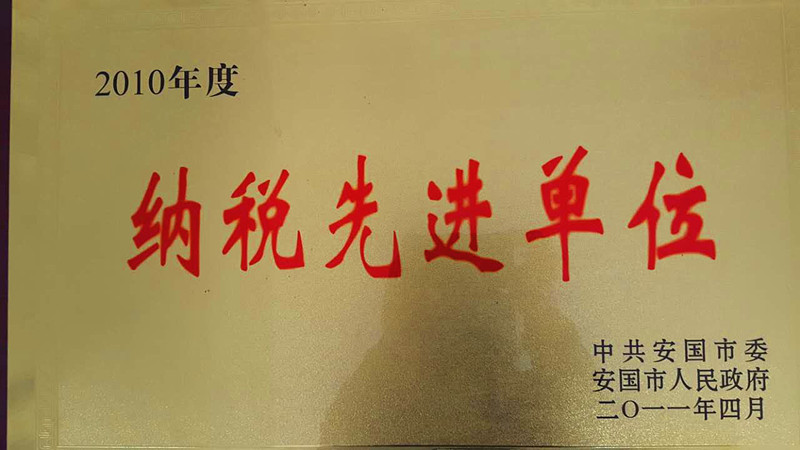 2010年度
纳税先进单位
中共安国市委
安国市人民政府
二〇一一年四月